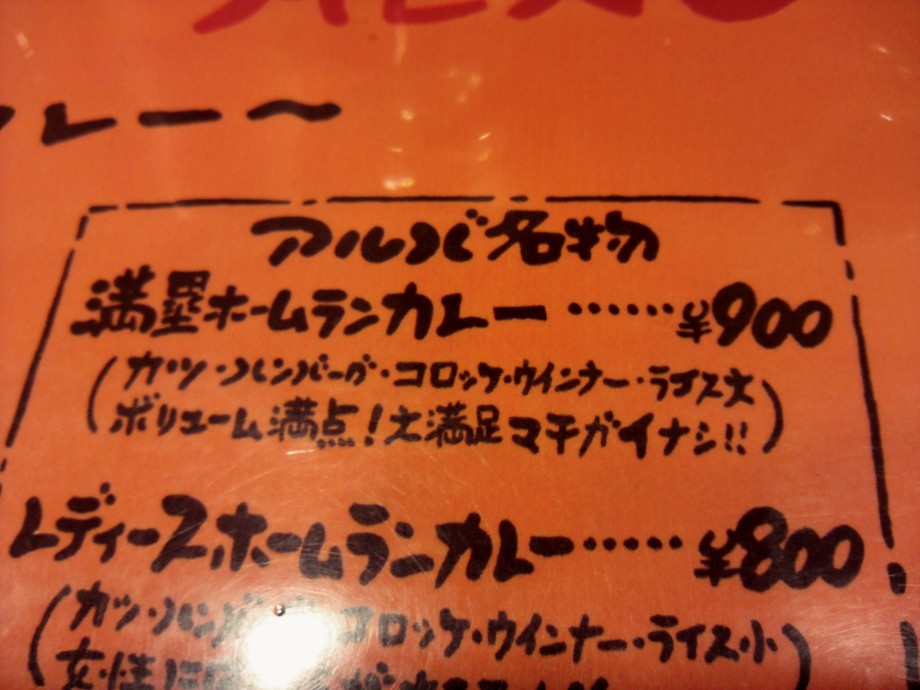 MENU
カレー〜
アルバ名物
満塁ホームランカレー……¥900
(カツ・ハンバーグ・コロッケ・ウインナー・ライス大
ボリューム満点!大満足マチガイナシ!!)
レディースホームランカレー……¥800
(カツ・ハンバーグ・コロッケ・ウインナー・ライス小)
女性に